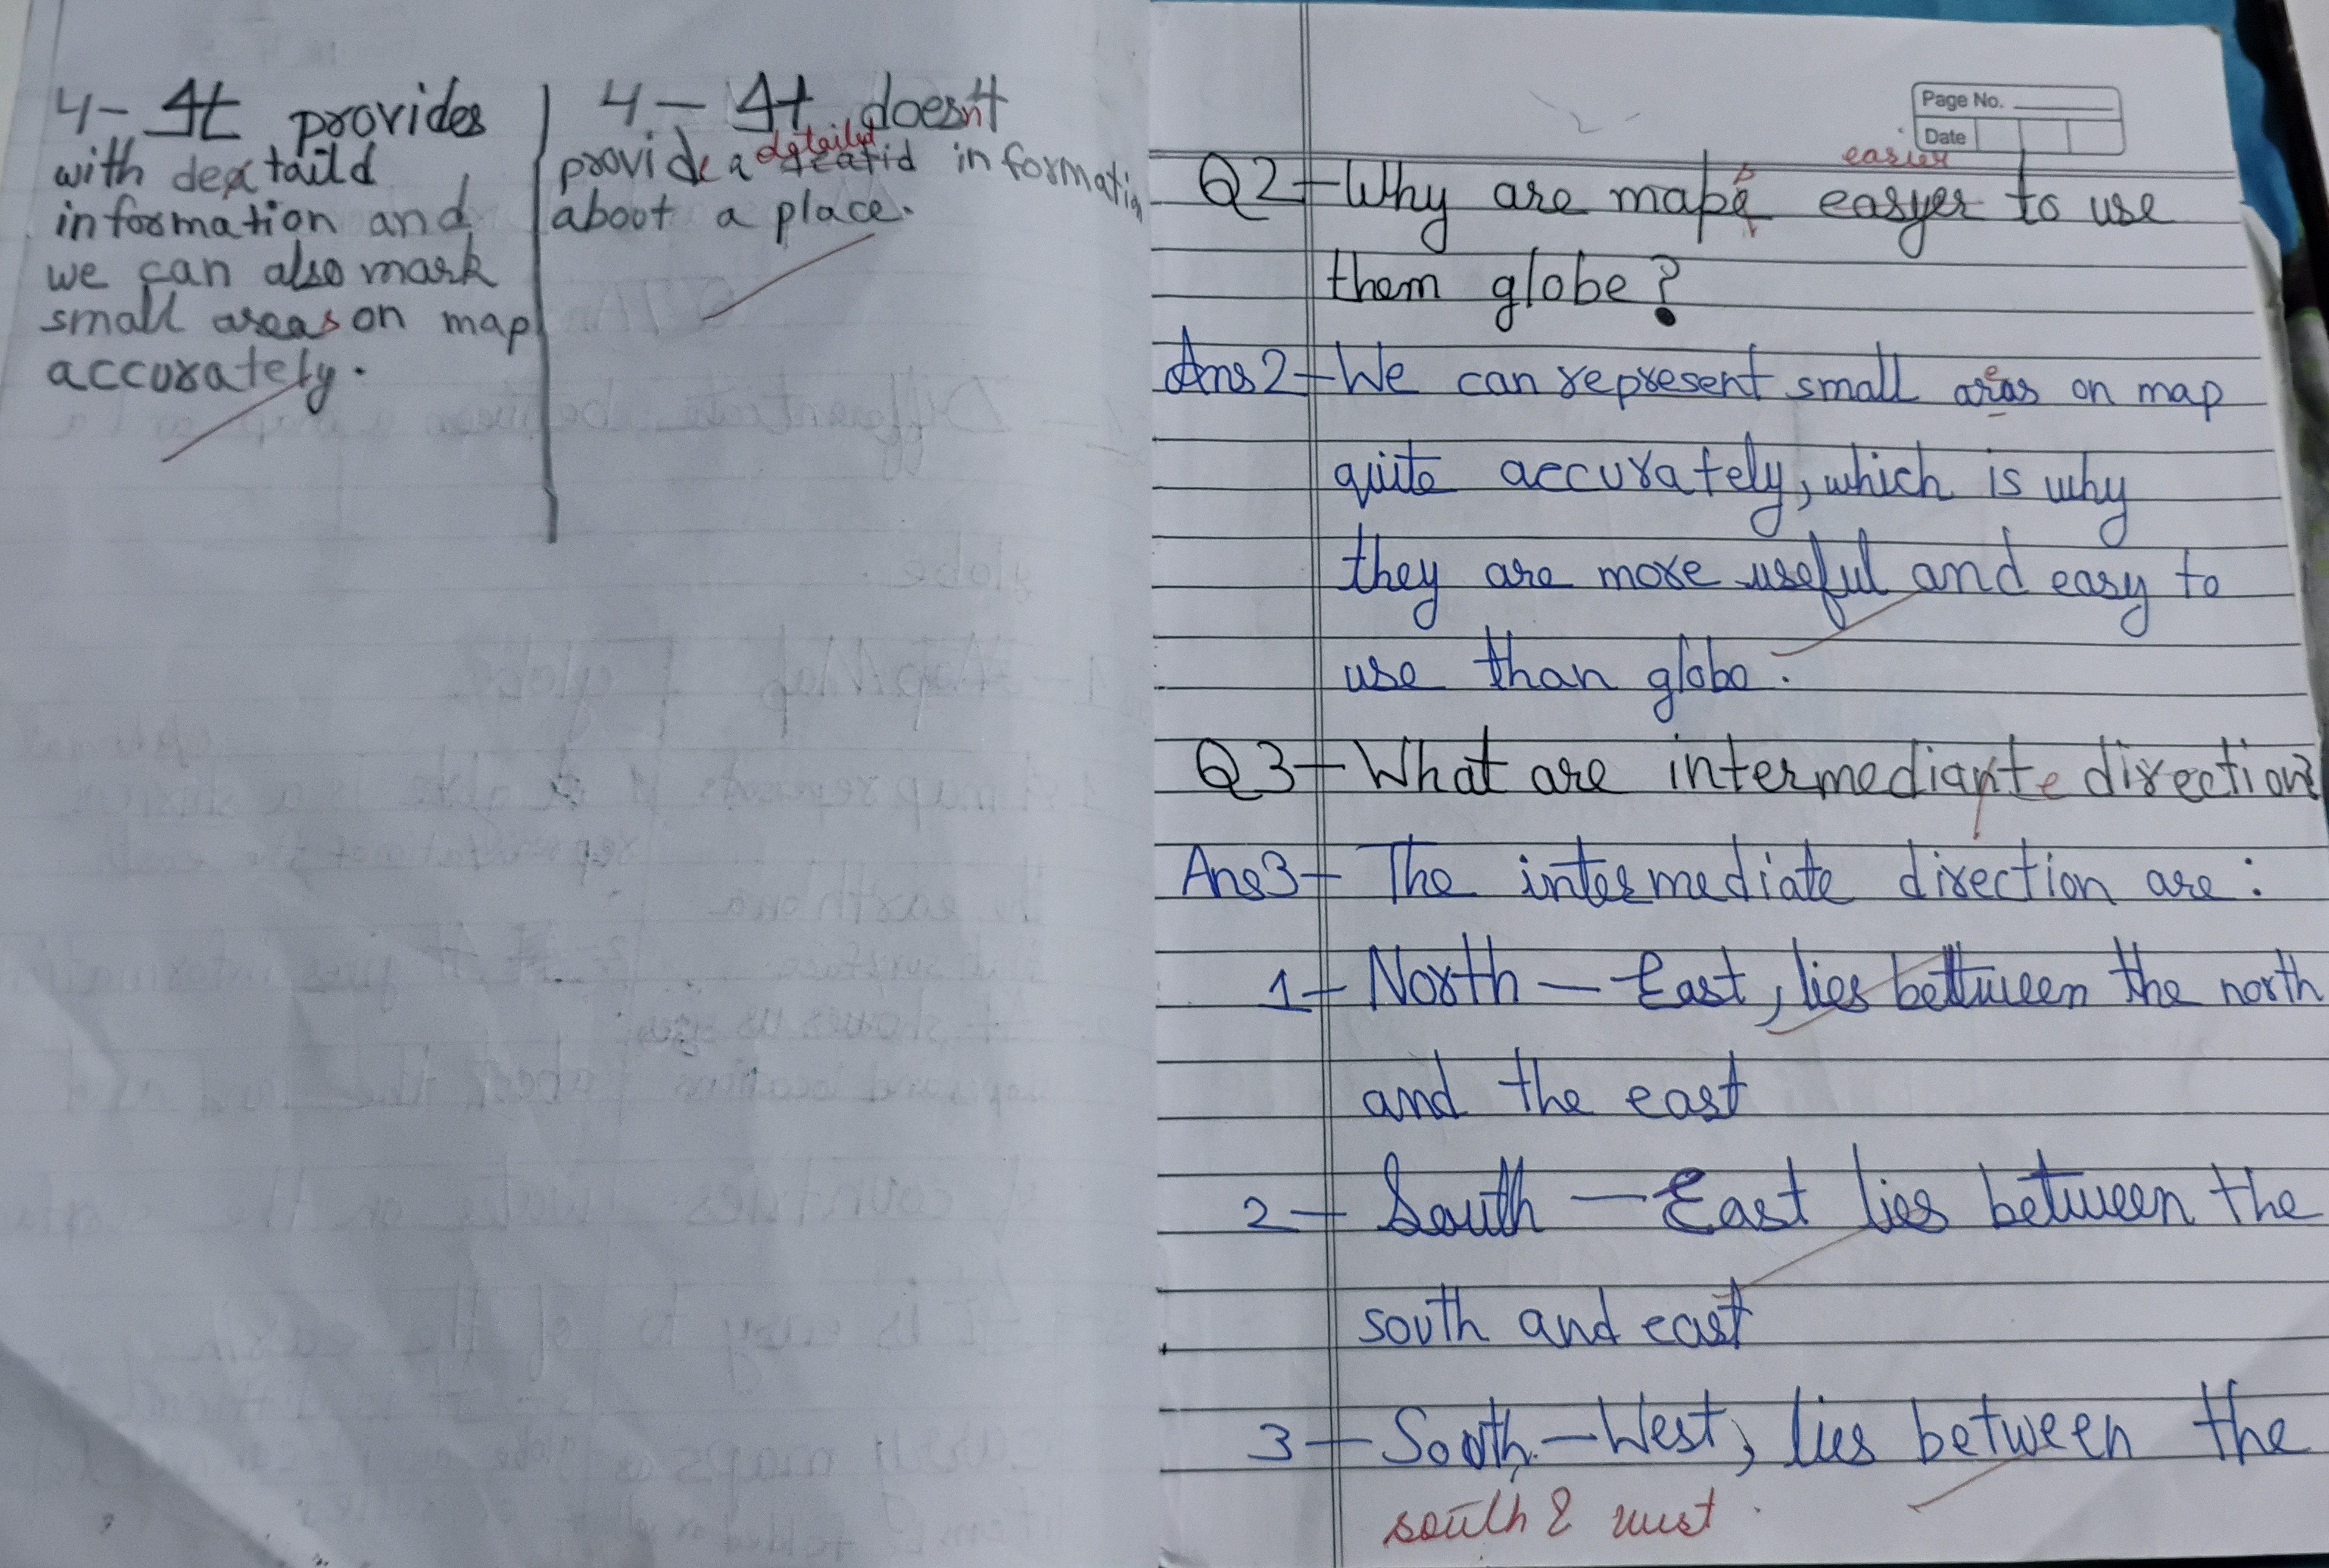 4- It provides
with deataild
information and
we can also mark
small areas on map
accurately.
4 - It doesn't
detailed
provide a information
about a place.
Page No.
Date
easier
Q2 - Why are maps easyer to use
them globe?
Ans2 - We can represent small areas on map
quite accurately, which is why
they are more useful and easy to
use than globe.
Q3 - What are intermediate direction?
Ans3 - The intermediate direction are:
1 - North - East, lies between the north
and the east
2 - South - East lies between the
south and east
3 - South - West, lies between the
south & west.